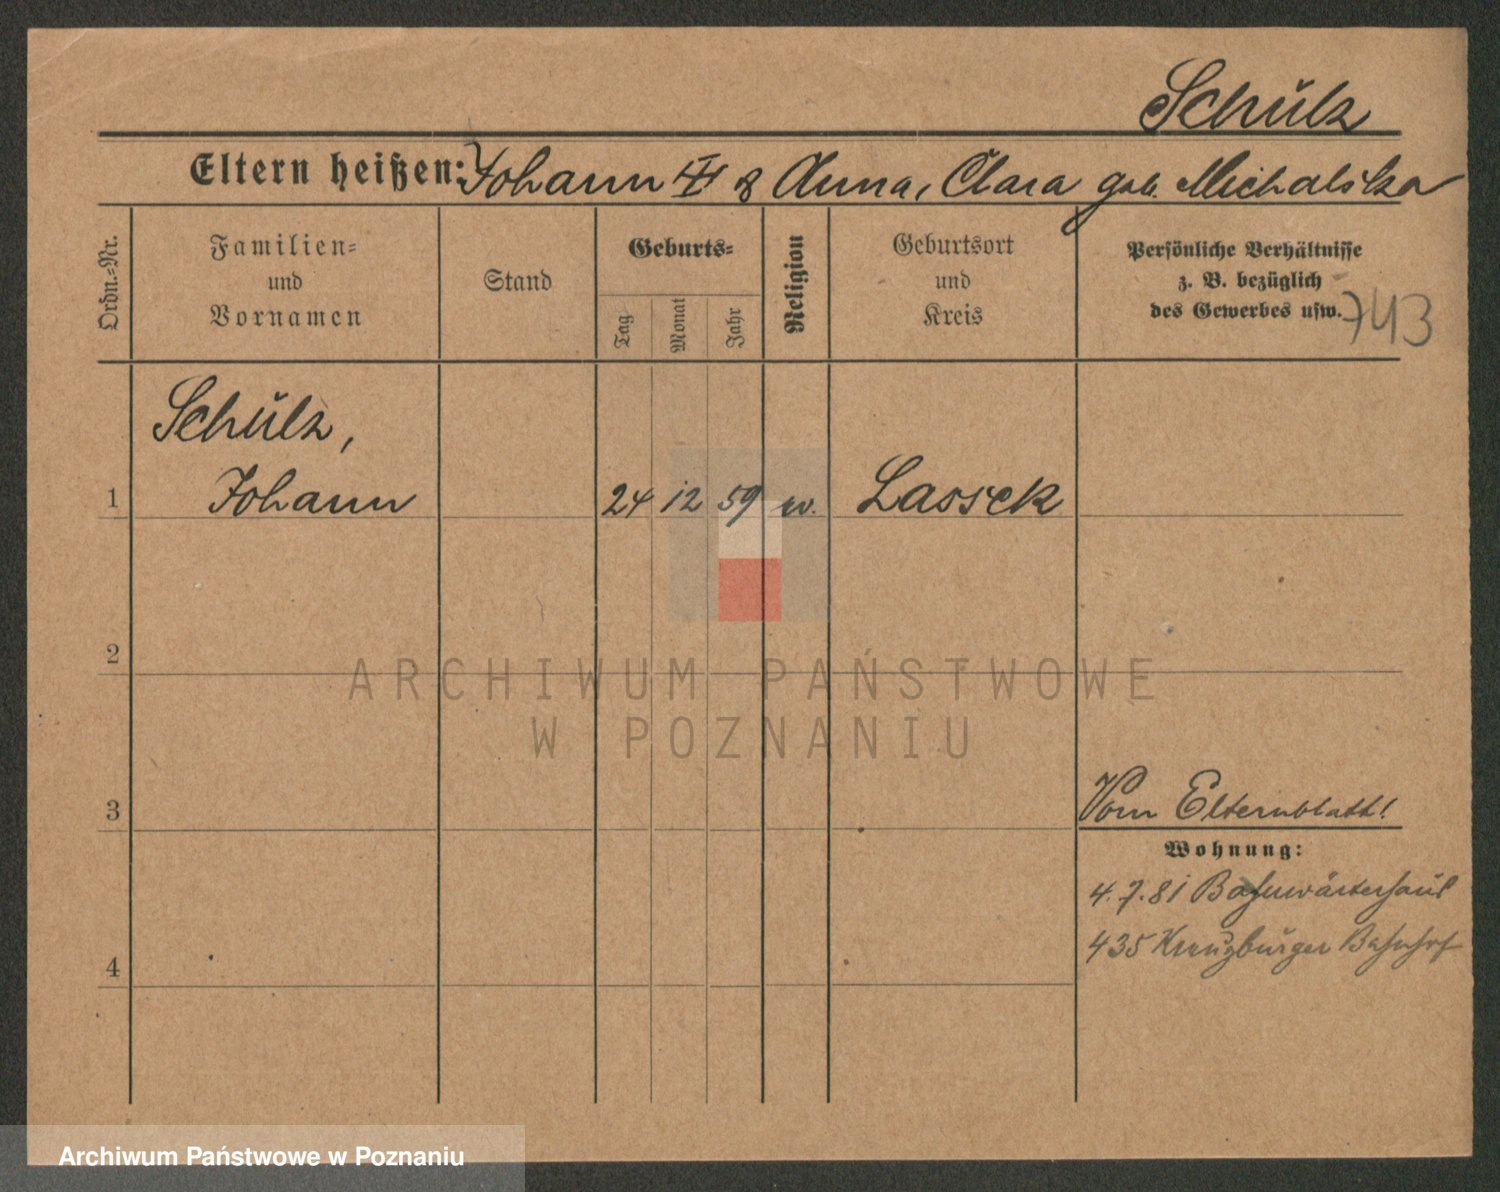 Schulz
Eltern heißen: Johann III & Anna, Clara geb. Michalska
Ordn.-Nr.
Familien-
und
Vornamen
Stand
Geburts-
Tag
Monat
Jahr
Religion
Geburtsort
und
Kreis
Persönliche Verhältnisse
z. B. bezüglich
des Gewerbes usw.
743
Schulz,
1 Johann 24 12 59 Lassek
2
ARCHIWUM PAŃSTWOWE
W POZNANIU
3 Vom Elternblatt!
Wohnung:
4.7.81 Bahnwärterhaus
4 435 Kreuzburger Bahnhof
Archiwum Państwowe w Poznaniu